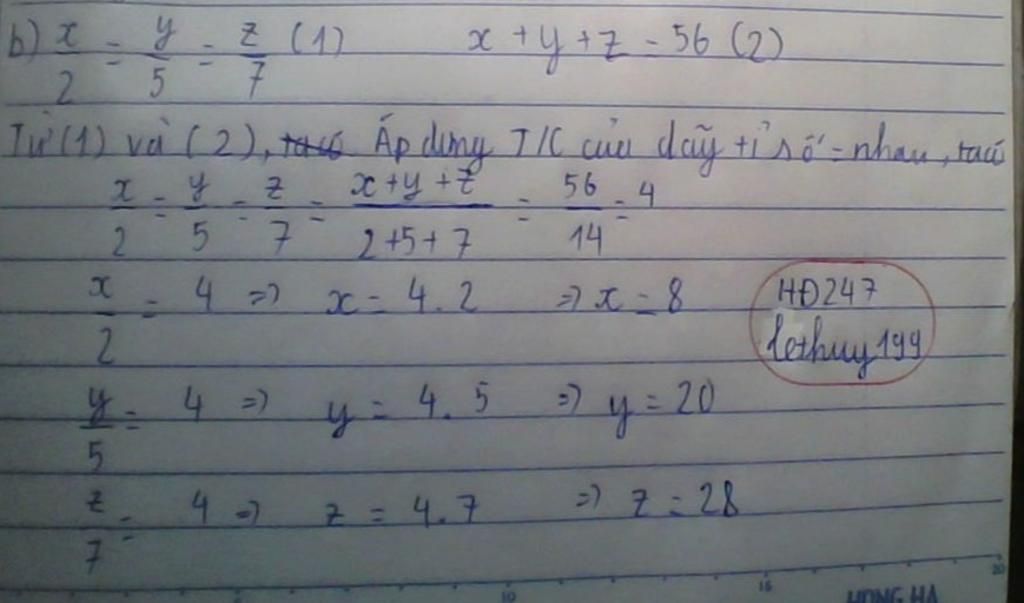 b) x/2 = y/5 = z/7 (1) x + y + z = 56 (2)
Từ (1) và (2), ta có Áp dụng T/C của dãy tỉ số = nhau, ta có
x/2 = y/5 = z/7 = (x + y + z)/(2 + 5 + 7) = 56/14 = 4
x/2 = 4 => x = 4.2 => x = 8
HĐ247
lethuy199
y/5 = 4 => y = 4.5 => y = 20
z/7 = 4 => z = 4.7 => z = 28
10 15 20
HONG HA